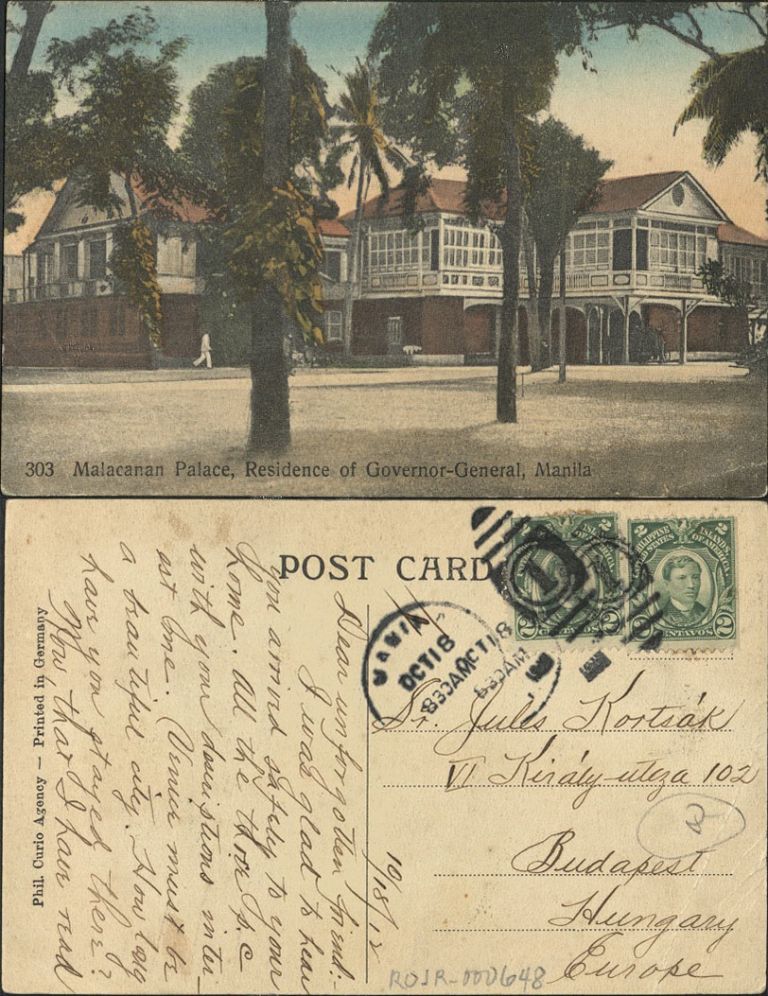 303 Malacanan Palace, Residence of Governor-General, Manila
POST CARD
Phil. Curio Agency — Printed in Germany
Dear unforgotten friend:-
I was glad to hear
you arrived safely to your
home. All the three p.c
with your devistions inter-
est me. Venice must be
a beautiful city. How long
have you stayed there?
Now that I have read
10/18/12
MANILA
OCT 18
830AM
OCT 18
830AM
1
1
PHILIPPINE ISLANDS
UNITED STATES OF AMERICA
2 CENTAVOS 2
Sr. Jules Kortsák
VI Király-utcza 102
Budapest
Hungary
Europe
ROJR-000648